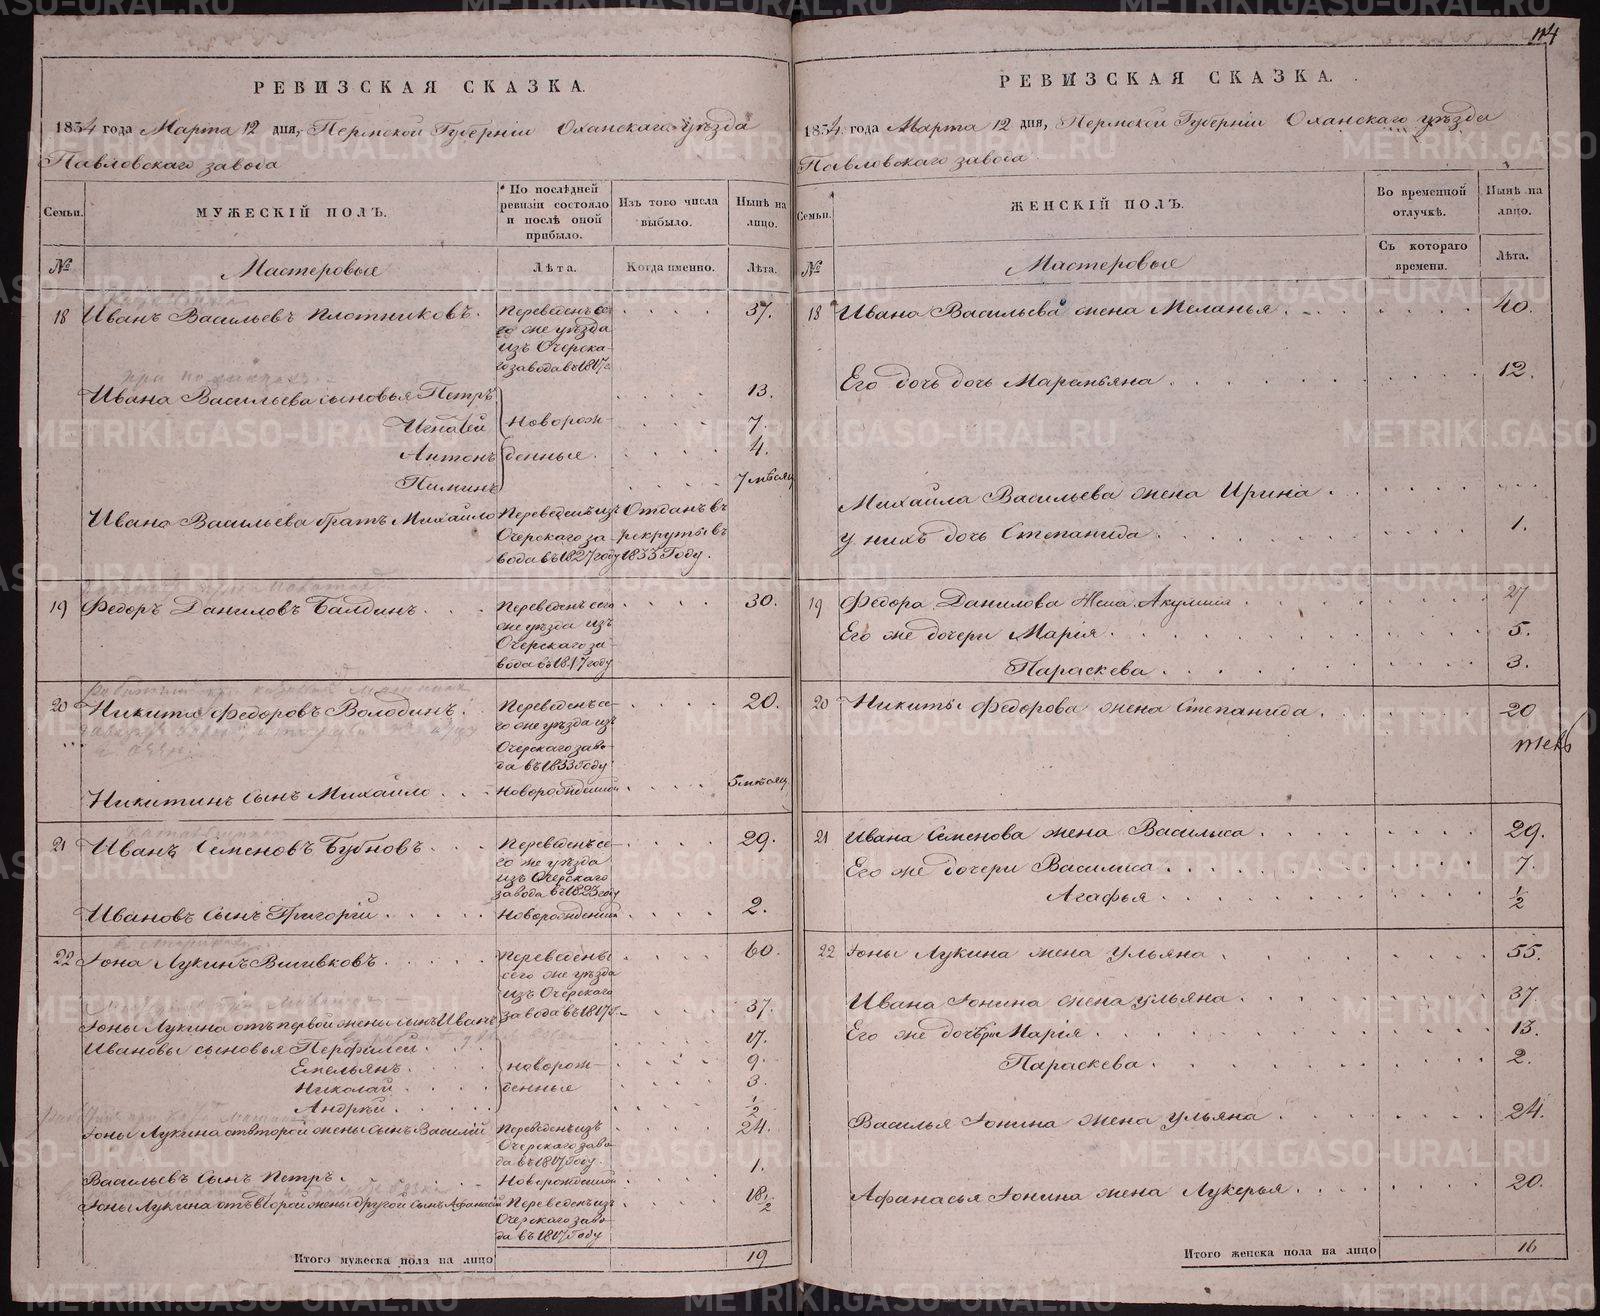 РЕВИЗСКАЯ СКАЗКА.
1834 года Марта 12 дня, Пермской Губерніи Оханскаго уѣзда
Павловскаго завода
Семьи.
МУЖЕСКІЙ ПОЛЪ.
По послѣдней ревизіи состояло и послѣ оной прибыло.
Изъ того числа выбыло.
Нынѣ на лицо.
№
Мастеровые
Лѣта.
Когда именно.
Лѣта.
18 Иванъ Васильевъ Плотниковъ. Переведенъ сего же уѣзда изъ Очерскаго завода въ 1817 г. 37.
Ивана Васильева сыновья Петръ 13.
Игнатей Новорож- 7.
Антонъ денные. 4.
Пиминъ 7 мѣсяц
Ивана Васильева братъ Михайло Переведенъ изъ Очерскаго завода въ 1827 году Отданъ въ рекруты въ 1833 Году.
19 Федоръ Даниловъ Балдинъ. Переведенъ сего же уѣзда изъ Очерскаго завода въ 1817 году 30.
20 Никита Федоровъ Володинъ. Переведенъ сего же уѣзда изъ Очерскаго завода въ 1833 Году 20.
Никитинъ сынъ Михайло Новорожденной 5 мѣсяц
21 Иванъ Семеновъ Бубновъ. Переведенъ сего же уѣзда изъ Очерскаго завода въ 1823 году 29.
Ивановъ сынъ Григорій Новорожденный 2.
22 Іона Лукинъ Вшивковъ. Переведены сего же уѣзда изъ Очерскаго завода въ 1817 г. 60.
Іоны Лукина отъ первой жены сынъ Иванъ 37.
Ивановы сыновья Перфилей. 17.
Емельянъ. новорож- 9.
Николай денные 3.
Андрей. 1/2
Іоны Лукина отъ второй жены сынъ Василій Переведенъ изъ Очерскаго завода въ 1817 Году. 24.
Васильевъ Сынъ Петръ. Новорожденной 1.
Іоны Лукина отъ второй жены другой сынъ Афанасій Переведенъ изъ Очерскаго завода въ 1817 Году 18 1/2
Итого мужеска пола на лицо 19
114
РЕВИЗСКАЯ СКАЗКА.
1834 года Марта 12 дня, Пермской Губерніи Оханскаго уѣзда
Павловскаго завода
Семьи.
ЖЕНСКІЙ ПОЛЪ.
Во временной отлучкѣ.
Нынѣ на лицо.
№
Мастеровые
Съ котораго времени.
Лѣта.
18 Ивана Васильева жена Меланья. 40.
Его дочь дочь Маремьяна 12.
Михайла Васильева жена Ирина
У нихъ дочь Степанида 1.
19 Федора Данилова Жена Акулина 27
Его же дочери Марія. 5.
Параскева 3.
20 Никиты Федорова жена Степанида 20
21 Ивана Семенова жена Василиса 29.
Его же дочери Василиса 7.
Агафья 1/2
22 Іоны Лукина жена Ульяна 55.
Ивана Іонина жена Ульяна 37
Его же дочери Марія 13.
Параскева 2.
Василья Іонина жена Ульяна 24.
Афанасья Іонина жена Лукерья 20.
Итого женска пола на лицо 16
METRIKI.GASO-URAL.RU